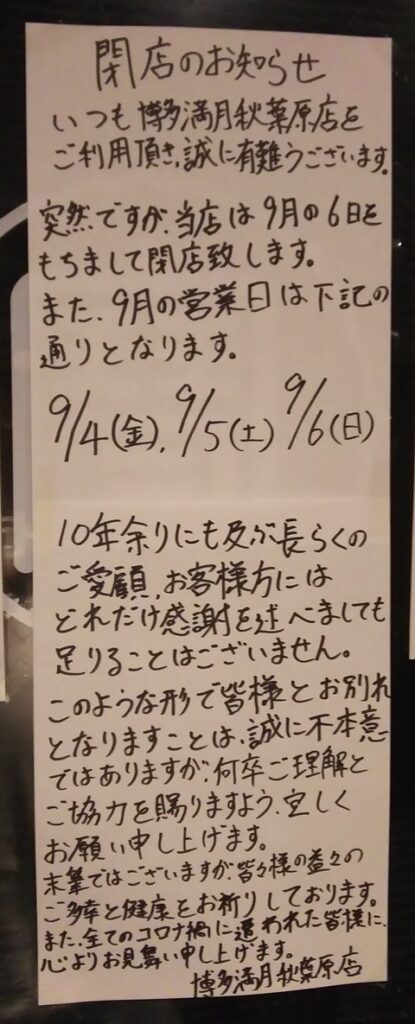 閉店のお知らせ
いつも博多満月秋葉原店を
ご利用頂き、誠に有難うございます。
突然ですが、当店は9月の6日を
もちまして閉店致します。
また、9月の営業日は下記の
通りとなります。
9/4(金)、9/5(土) 9/6(日)
10年余りにも及ぶ長らくの
ご愛顧、お客様方には
どれだけ感謝を述べましても
足りることはございません。
このような形で皆様とお別れ
となりますことは、誠に不本意
ではありますが、何卒ご理解と
ご協力を賜りますよう、宜しく
お願い申し上げます。
末筆ではございますが、皆々様の益々の
ご多幸と健康とお祈りしております。
また、全てのコロナ禍に遭われた皆様に、
心よりお見舞い申し上げます。
博多満月秋葉原店